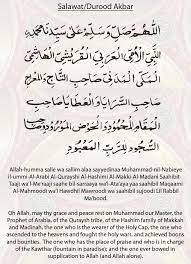 Salawat/Durood Akbar
اللَّهُمَّ صَلِّ وَسَلِّمْ عَلَى سَيِّدِنَا مُحَمَّدٍ
النَّبِيِّ الْأُمِّيِّ الْعَرَبِيِّ الْقُرَيْشِيِّ الْهَاشِمِيِّ
الْمَكِّيِّ الْمَدَنِيِّ صَاحِبِ التَّاجِ وَالْمِعْرَاجِ
صَاحِبِ السَّرَايَا وَالْعَطَايَا صَاحِبِ
الْمَقَامِ الْمَحْمُودِ وَالْحَوْضِ الْمَوْرُودِ صَاحِبِ
السُّجُودِ لِلرَّبِّ الْمَعْبُودِ
Allah-humma salle wa sallim ala sayyedinaa Muhammad nil-Nabieye
l-ummi Al-Arabi Al-Qurayshi Al-Hashimi Al-Makki Al-Madani Saahibit-
Taaj wa'l-Me'raaj saahe bil sarraaya wa'l-Ata'aya yaa saahibil Maqaami
Al-Mahmoodi wa'l Hawdhil Mawroodi wa saahibil sujoodi Lil Rabbil
Ma'bood.
Oh Allah, may thy grace and peace rest on Muhammad our Master, the
Prophet of Arabia, of the Quraysh tribe, of the Hashim family of Makkah
and Madinah, the one who is the wearer of the Holy Cap, the one who
ascended to the heavens and fought the holy wars, and achieved boons
and bounties. The one who has the place of praise and who is in charge
of the Kawthar (fountain in paradise); and the one ever bowed in
supplication to Allah (and Allah alone).